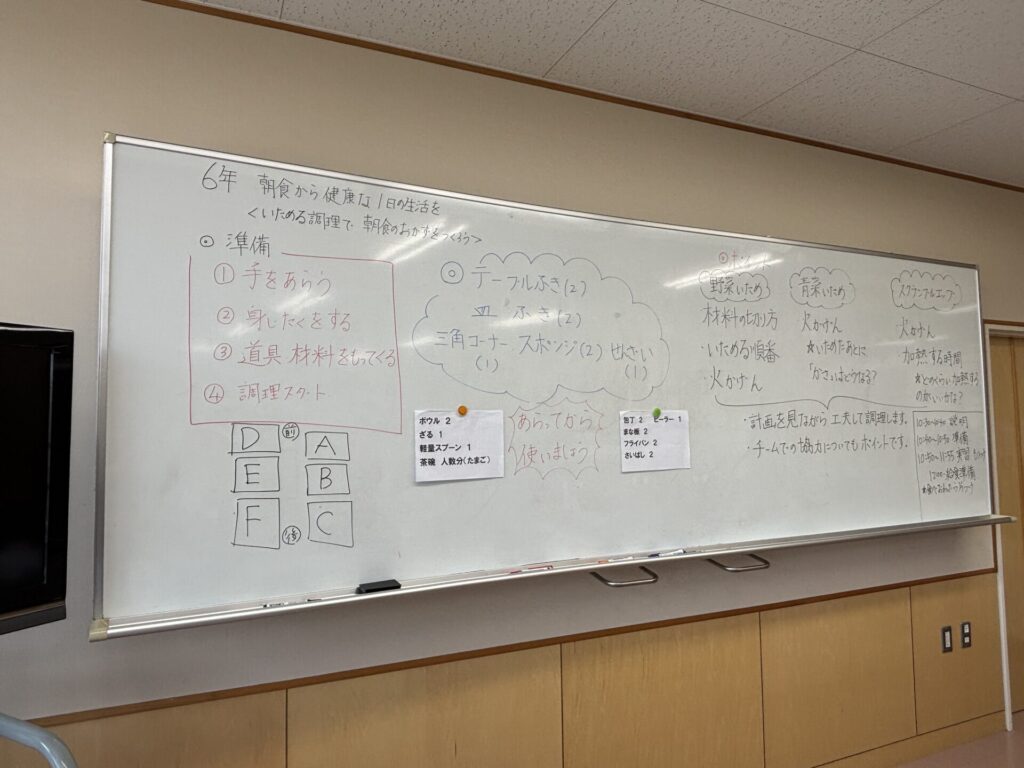 6年 朝食から健康な1日の生活を
<いためる調理で 朝食のおかずをつくろう>
◎ 準備
① 手をあらう
② 身じたくをする
③ 道具 材料をもってくる
④ 調理スタート
D 前 A
E B
F 後 C
◎ テーブルふき(2)
皿 ふき(2)
三角コーナー スポンジ(2) せんざい
(1) (1)
ボウル 2
ざる 1
軽量スプーン 1
茶碗 人数分(たまご)
あらってから
使いましょう
包丁 2 ピーラー 1
まな板 2
フライパン 2
さいばし 2
野菜いため
材料の切り方
・いためる順番
火かげん
青菜いため
火かげん
★いためたあとに
「かさ」はどうなる?
スクランブルエッグ
火かげん
加熱する時間
★どのくらい加熱する
のがいいかな?
・計画を見ながら 工夫して調理します。
・チームでの協力についてもポイントです。
説明
準備
実習
12:00~給食準備